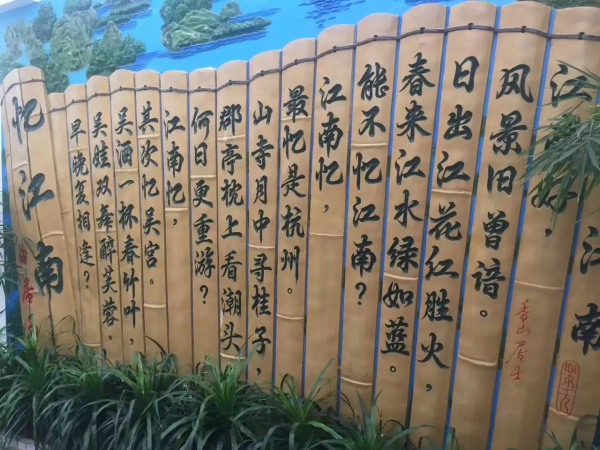 江南
江
好，
风景旧曾谙。
香山居士
日出江花红胜火，
春来江水绿如蓝。
能不忆江南？
江南忆，
最忆是杭州。
山寺月中寻桂子，
郡亭枕上看潮头
何日更重游？
江南忆，
其次忆吴宫。
吴酒一杯春竹叶，
吴娃双舞醉芙蓉。
早晚复相逢？
忆江南